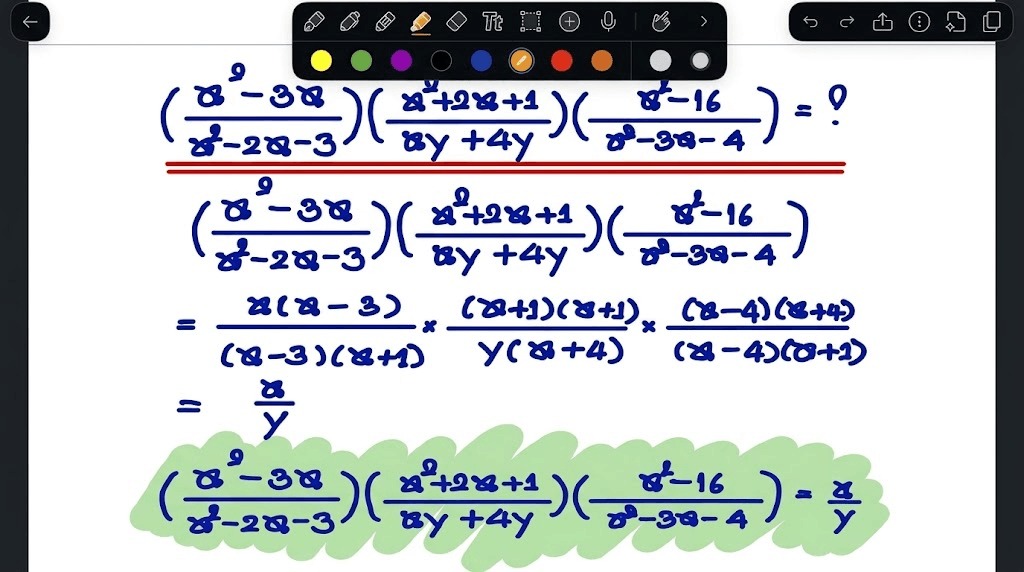 (x²-3x / x²-2x-3)(x²+2x+1 / xy+4y)(x²-16 / x²-3x-4) = ?
(x²-3x / x²-2x-3)(x²+2x+1 / xy+4y)(x²-16 / x²-3x-4)
= x(x-3) / (x-3)(x+1) × (x+1)(x+1) / y(x+4) × (x-4)(x+4) / (x-4)(x+1)
= x / y
(x²-3x / x²-2x-3)(x²+2x+1 / xy+4y)(x²-16 / x²-3x-4) = x / y